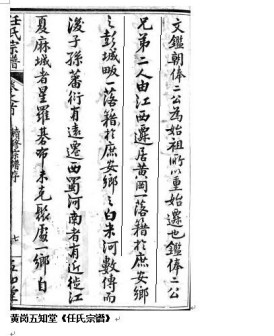 文鑑朝俸二公為始祖所以重始遷也鑑俸二公
兄弟二人由江西遷居黃岡一落籍於庶安鄉
之彭城畈一落籍於庶安鄉之白米河數傳而
後子孫蕃衍有遠遷西蜀河南者有近徙江
夏麻城者星羅碁布未克聚處一鄉自
任氏宗譜
卷之首
續修宗譜序
七
黄岗五知堂《任氏宗谱》